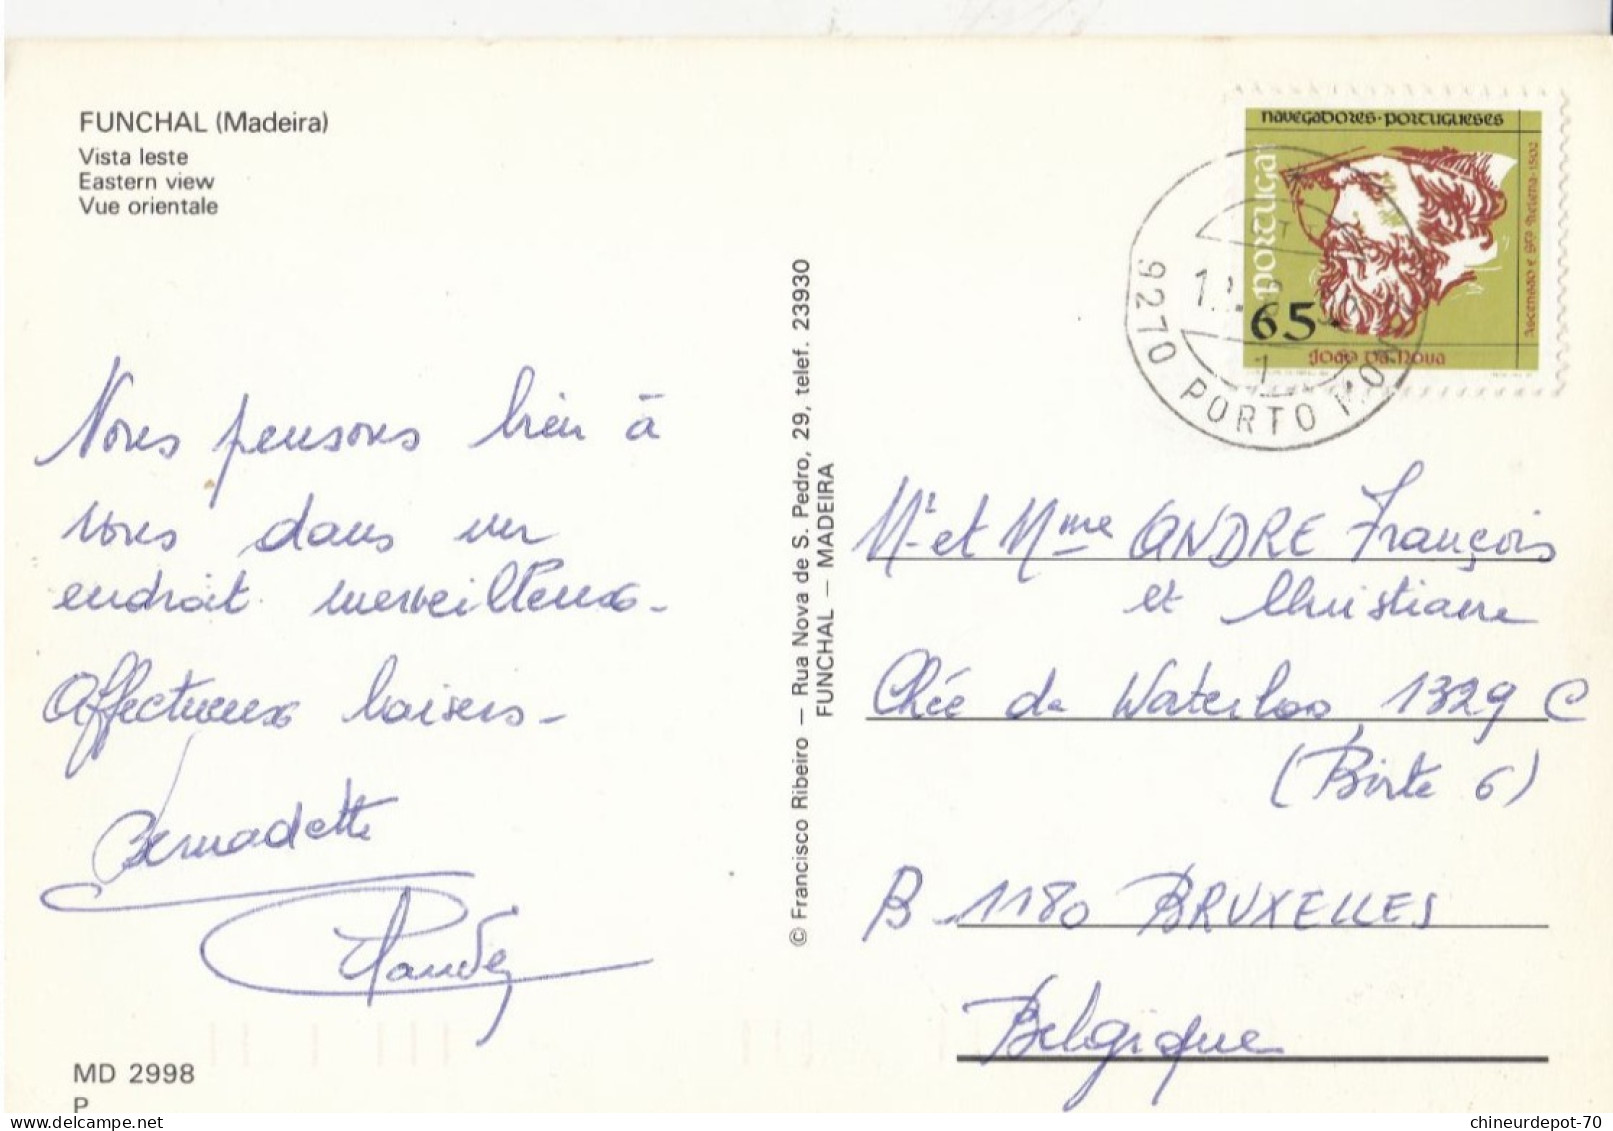 FUNCHAL (Madeira)
Vista leste
Eastern view
Vue orientale
Nous pensons bien à
vous dans un
endroit merveilleux.
Affectueux baisers -
Bernadette
Claude
MD 2998
P
© Francisco Ribeiro — Rua Nova de S. Pedro, 29, telef. 23930
FUNCHAL — MADEIRA
navegadores·portugueses
portugal
65.
João da Nova
Ascensão e Stª Helena·1502
9270 PORTO MO
1
Mr et Mme ANDRE François
et Christiane
Chée de Waterloo 1329 C
(Boîte 6)
B - 1180 BRUXELLES
Belgique
chineurdepot-70